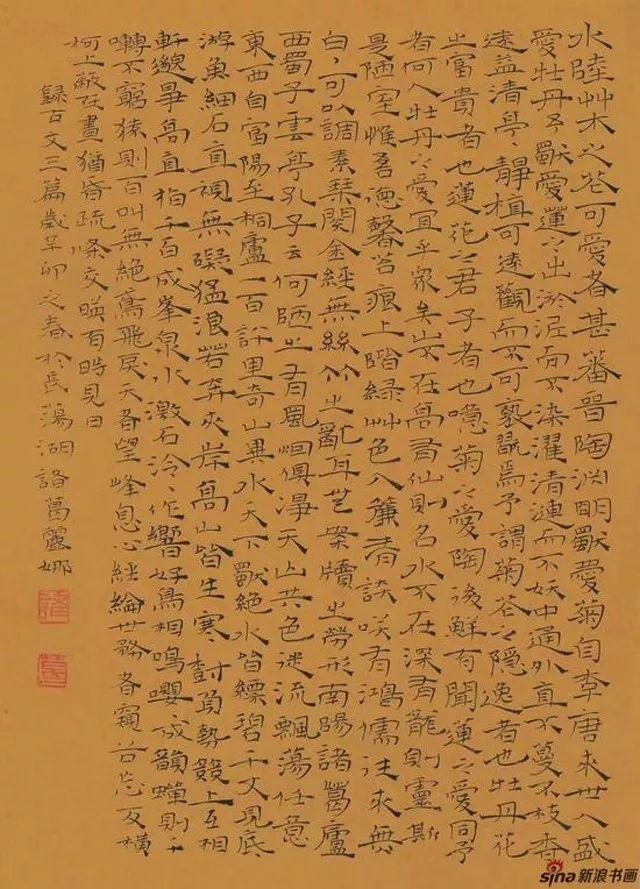 水陸艸木之花可愛者甚蕃晉陶淵明獨愛菊自李唐來世人盛
愛牡丹予獨愛蓮之出淤泥而不染濯清漣而不妖中通外直不蔓不枝香
遠益清亭〻靜植可遠觀而不可褻翫焉予謂菊花之隱逸者也牡丹花
之富貴者也蓮花之君子者也噫菊之愛陶後鮮有聞蓮之愛同予
者何人牡丹之愛宜乎衆矣山不在高有仙則名水不在深有龍則靈斯
是陋室惟吾德馨苔痕上階綠艸色入簾青談咲有鴻儒往來無
白丁可以調素琴閱金經無絲竹之亂耳無案牘之勞形南陽諸葛廬
西蜀子雲亭孔子云何陋之有風烟俱淨天山共色從流飄蕩任意
東西自富陽至桐廬一百許里奇山異水天下獨絕水皆縹碧千丈見底
游魚細石直視無礙猛浪若奔夾岸高山皆生寒樹負勢競上互相
軒邈爭高直指千百成峯泉水激石泠〻作響好鳥相鳴嚶〻成韻蟬則千
囀不窮猿則百叫無絕鳶飛戾天者望峰息心經綸世務者窺谷忘反橫
柯上蔽在晝猶昏疏條交映有時見日
録古文三篇歲辛卯之春於長蕩湖諸葛麗娜
sina新浪书画